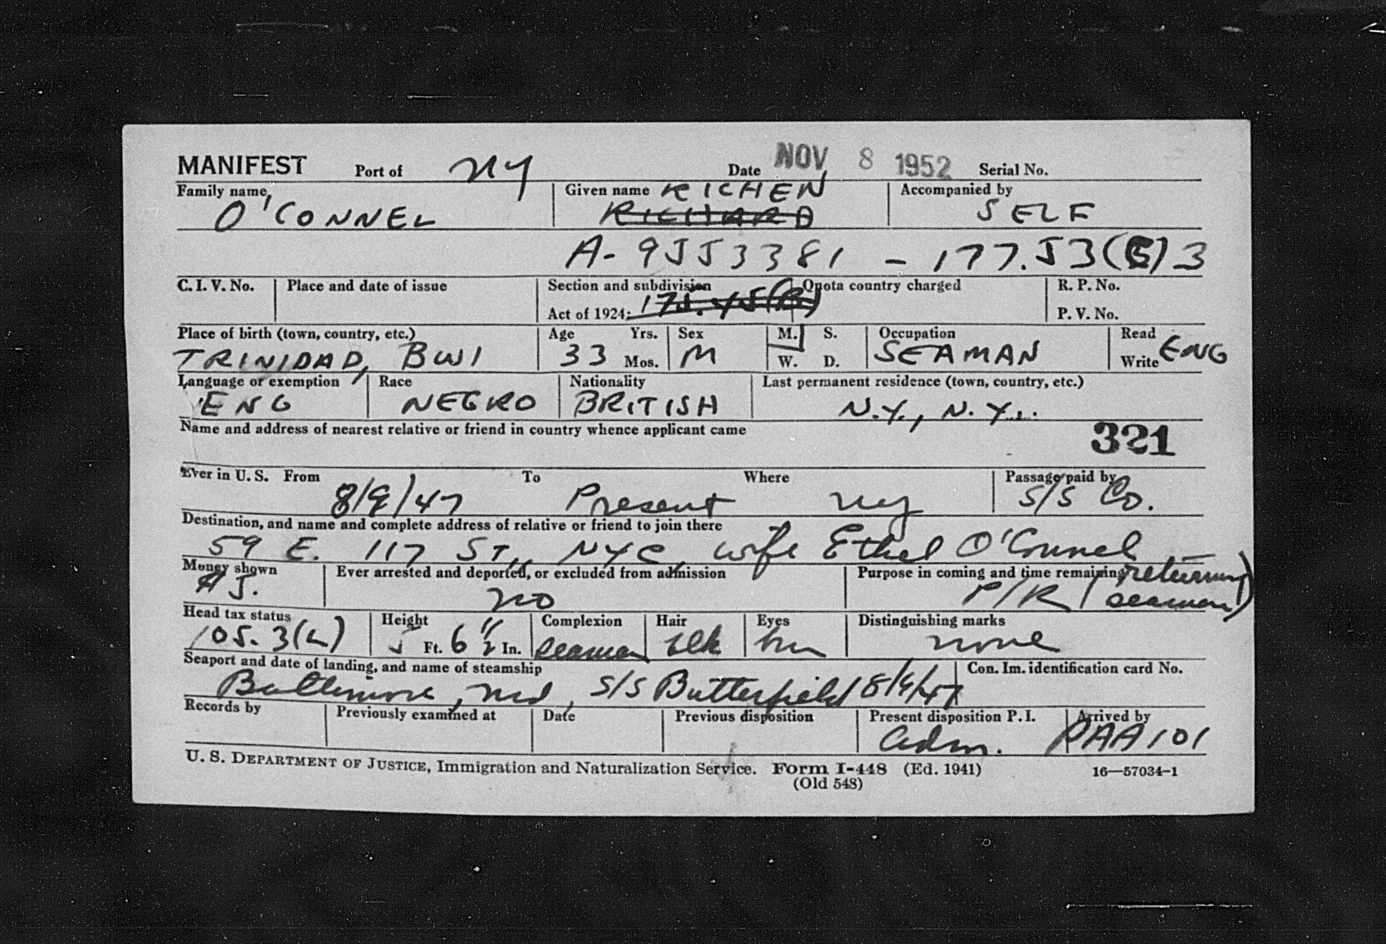 MANIFEST Port of NY Date NOV 8 1952 Serial No.
Family name O'CONNEL Given name RICHEN Accompanied by SELF
RICHARD
A-9553381 - 177.53(C)3
C. I. V. No. Place and date of issue Section and subdivision Quota country charged R. P. No.
Act of 1924: P. V. No.
Place of birth (town, country, etc.) Age Yrs. Sex M. S. Occupation Read
TRINIDAD, BWI 33 Mos. M W. D. SEAMAN Write ENG
Language or exemption Race Nationality Last permanent residence (town, country, etc.)
ENG NEGRO BRITISH N.Y., N.Y.
Name and address of nearest relative or friend in country whence applicant came
321
Ever in U. S. From To Where Passage paid by
8/9/47 Present NY S/S Co.
Destination, and name and complete address of relative or friend to join there
59 E. 117 ST., NYC, wife Ethel O'Connel
Money shown Ever arrested and deported, or excluded from admission Purpose in coming and time remaining
$5. no P/R (returning seaman)
Head tax status Height Complexion Hair Eyes Distinguishing marks
105.3(L) 5 Ft. 6 1/2 In. seaman blk brn none
Seaport and date of landing, and name of steamship Con. Im. identification card No.
Baltimore, Md, S/S Butterfield 8/9/47
Records by Previously examined at Date Previous disposition Present disposition P. I. Arrived by
adm. PAA 101
U. S. DEPARTMENT OF JUSTICE, Immigration and Naturalization Service. Form I-448 (Ed. 1941) 16—57034-1
(Old 548)